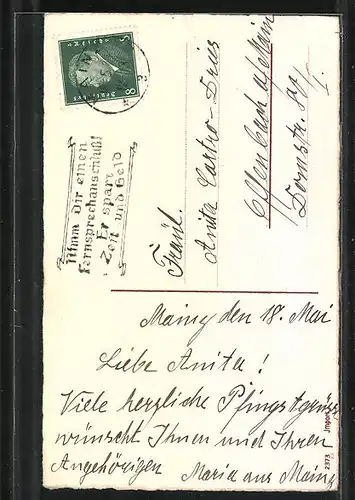 Nimm Dir einen
Fernsprechanschluß!
Er spart
Zeit und Geld
Deutsches
Reich
8
Fräul.
Anita Castro-Dreis
Offenbach a/Main
Domstr.
Mainz den 18. Mai
Liebe Anita!
Viele herzliche Pfingstgrüsse
wünscht Ihnen und Ihren
Angehörigen Maria aus Mainz
2373 Import